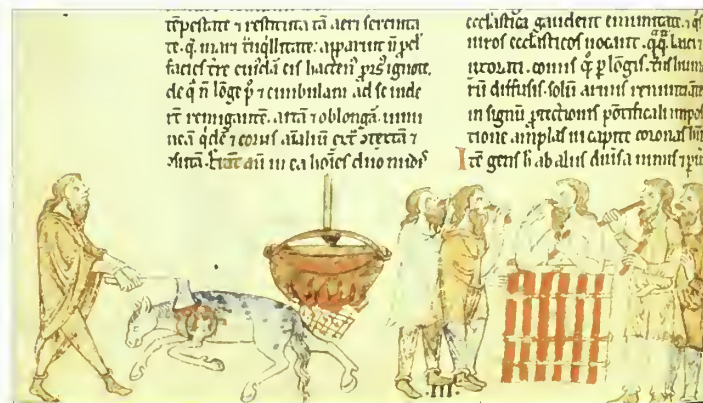 tēpestate ⁊ restituta tā aeri serenita
te. q̄ mari t̄nq̄llitate: apparuit ñ pꝉ
facies t̄re cuiꝰdā eis hacten̄ prꝰ ignote.
de q̄ ñ lōge pꝰ ⁊ cimbulam ad se uide
rt̄ remigantē. artā ⁊ oblongā. uimi
neā q̄dē ⁊ coriis aīaliū ext͛ ꝯtectā ⁊
ꝯsutā. Erāt aū in ea hoīes duo nudis
ecclīastica gaudent emunitate. ⁊ q̄s
uiros ecclīasticos uocant. q̄q̄ laici
uxorati. comis q̄ p̄lōgis. trās hume
rū diffusis. solū armis renuntiantes
in signū p̄tectionis pōtificali impos
tione amplas in capite coronas hn̄t
Itē gens h̄ ab aliis diuisa nimis ⁊ pu
.III.